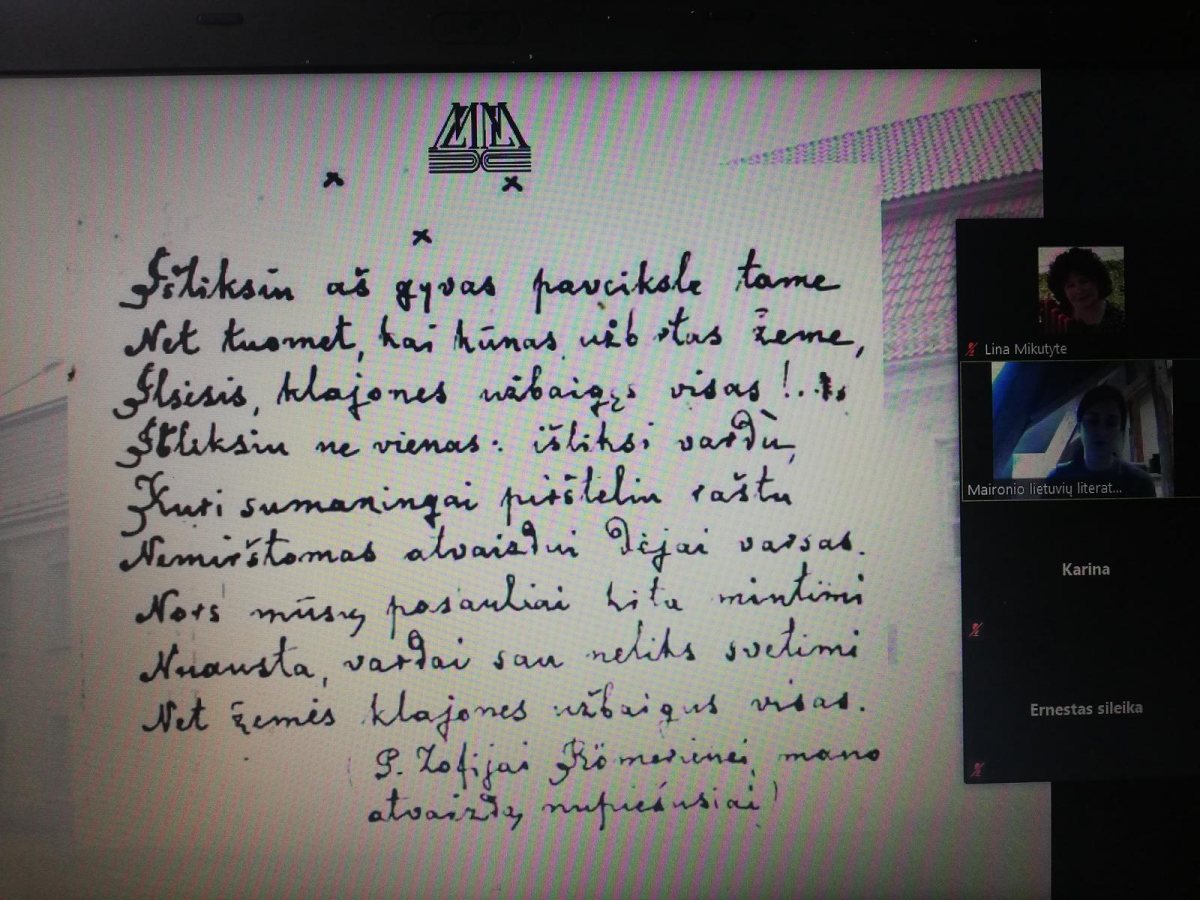 MLLM
x x
x
Išliksiu aš gyvas paveiksle tame
Net tuomet, kai kūnas, užb rtas žeme,
Ilsėsis, klajones užbaigęs visas!...
Išliksiu ne vienas: išliksi vardu,
Kuri sumaningai pirštelių raštu
Nemirštomas atvaizdui dėjai varsas.
Nors mūsų pasauliai kita mintimi
Nuausta, vardai sau neliks svetimi
Net žemės klajones užbaigus visas.
(P. Zofijai Römerienei, mano
atvaizdą nupiešusiai)
Lina Mikutyte
Maironio lietuvių literat...
Karina
Ernestas sileika